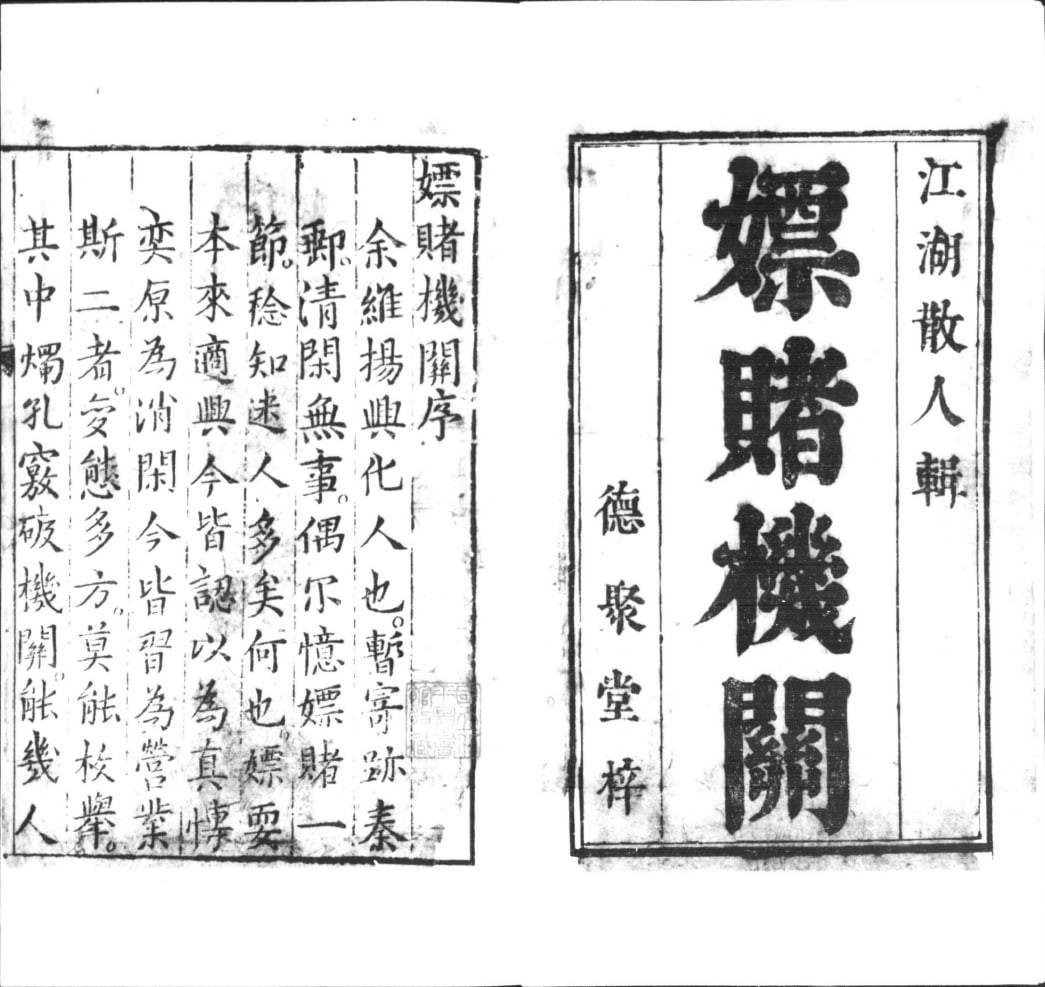 江湖散人輯
嫖賭機關
德聚堂梓
嫖賭機關序
余維揚興化人也暫寄跡秦
郵清閑無事偶尔憶嫖賭一
節稔知迷人多矣何也嫖耍
本來適興今皆認以為真情
奕原為消閑今皆習為營業
斯二者变態多方莫能枚舉
其中燭孔竅破機關能幾人